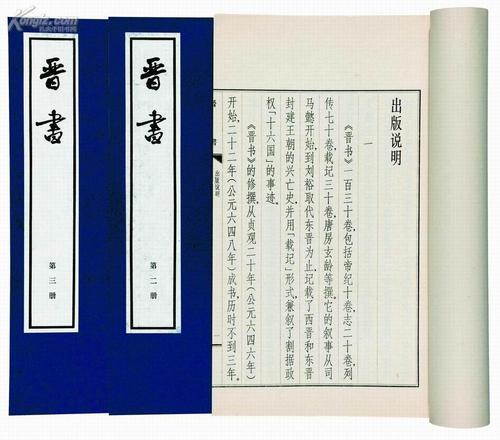 Kongfz.com
孔夫子旧书网
晋书
第三册
晋书
第二册
出版说明
一
《晋书》一百三十卷,包括帝纪十卷,志二十卷,列
传七十卷,载记三十卷,唐房玄龄等撰。它的叙事从司
马懿开始,到刘裕取代东晋为止,记载了西晋和东晋
封建王朝的兴亡史,并用「载记」形式,兼叙了割据政
权「十六国」的事迹。
《晋书》的修撰,从贞观二十年(公元六四六年)
开始,二十二年(公元六四八年)成书,历时不到三年。
出版说明